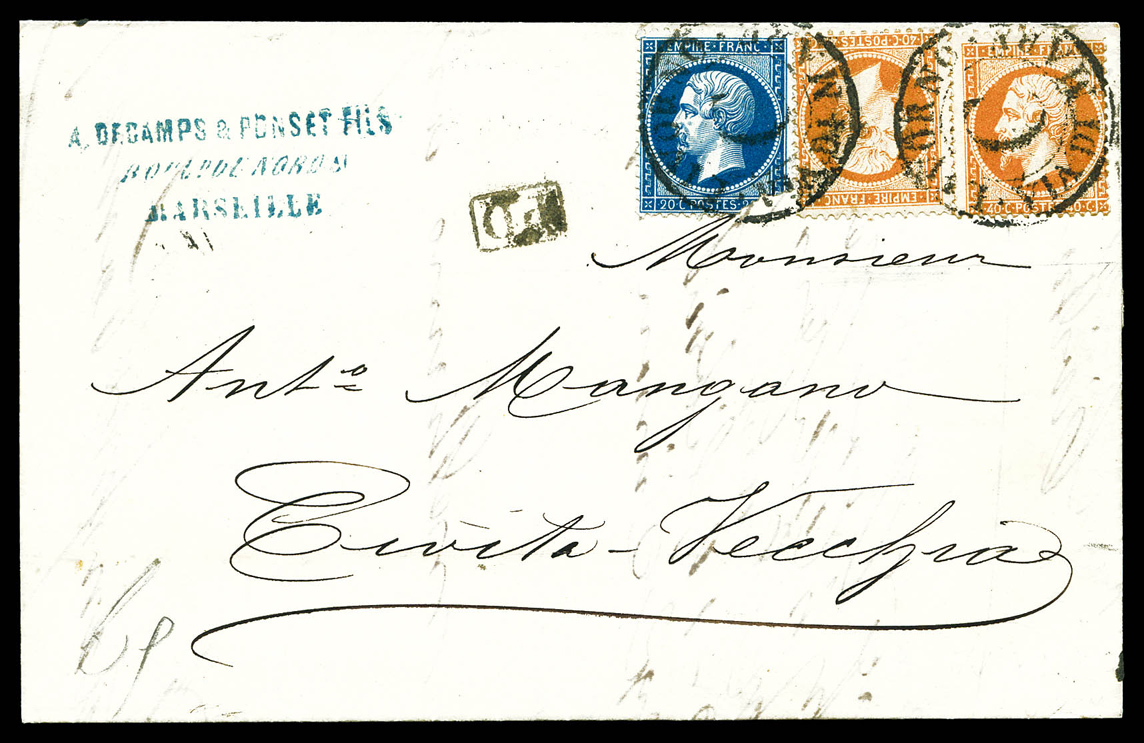 A. DECAMPS & PONSET FILS
MARSEILLE
P.D.
EMPIRE FRANC
20 C POSTES 20
40 C POSTES
EMPIRE FRANC
EMPIRE FRANC
40 C POSTES 40 C
Monsieur
Antº Mangano
Civita-Vecchia